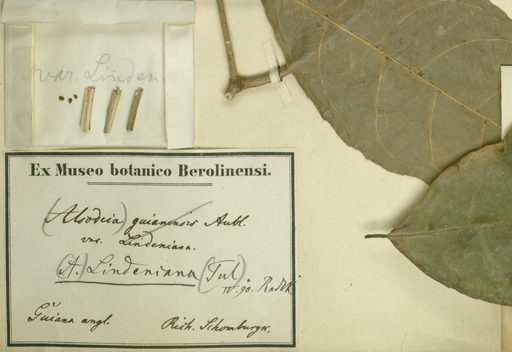 var. Linden
Ex Museo botanico Berolinensi.
(Alsodeia) guianensis Aubl.
var. Lindeniana.
(A.) Lindeniana (Tul)
IV. 90. Radlk
Guiana angl. Rich. Schomburgk.